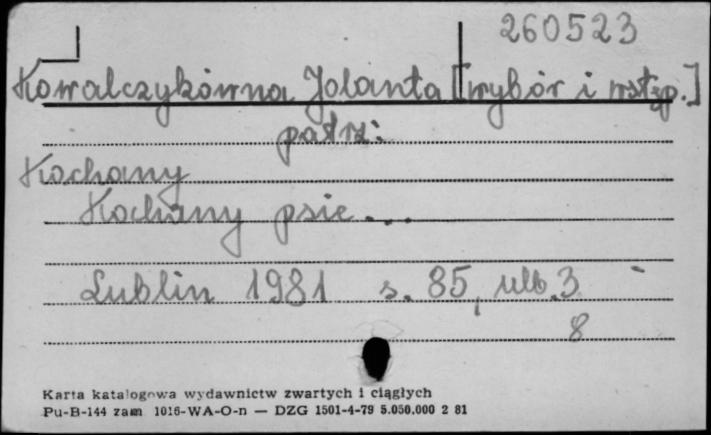 260523
Kowalczykówna Jolanta [wybór i wstęp.]
patrz:
Kochany
Kochany psie...
Lublin 1981 s. 85, nlb. 3
8
Karta katalogowa wydawnictw zwartych i ciągłych
Pu-B-144 zam 1016-WA-O-n — DZG 1501-4-79 5.050.000 2 81